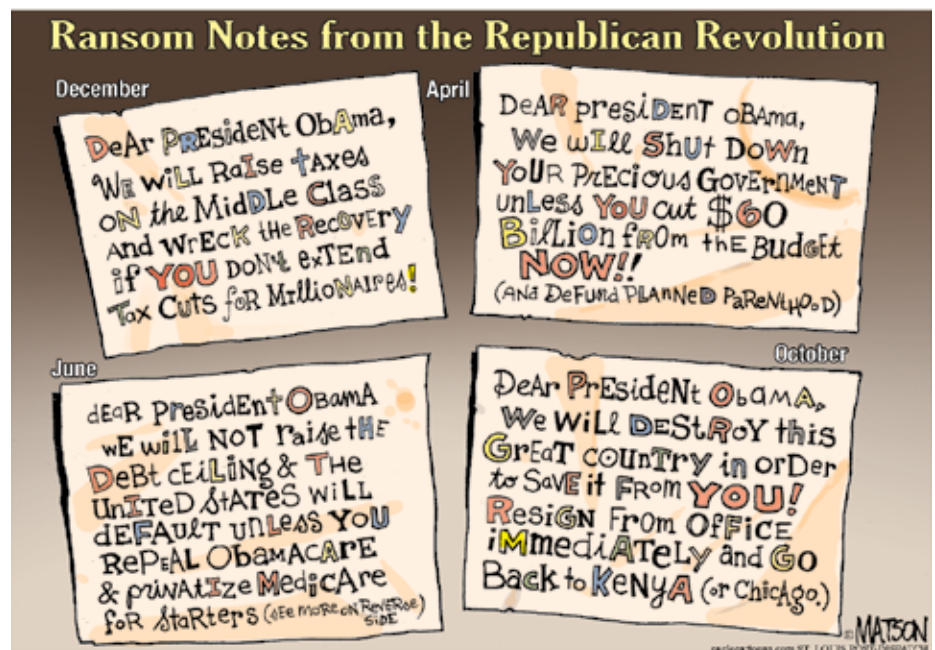 Ransom Notes from the Republican Revolution
December
DeAr PrESideNt ObAma,
WE WiLL RaIse tAxes
oN the MidDLe Class
And WrEcK tHe RecOVeRy
if YOU DoN't exTEnd
Tax CutS foR MillioNAires!
April
DeAR presiDENT oBAma,
We wIll Shut DoWn
YoUR PrEcioUs GovErnmeNT
unLess YOU cut $60
BilLiOn fROm thE BudgEt
NOW!!
(And DeFund PLanNeD PaReNtHOoD)
June
dEaR PresidEnt OBamA
wE wilL NOT raise tHE
DeBt cEiLiNg & THe
UnITeD StATeS WiLL
dEFAULT unLess YoU
RePEAL ObamACARE
& privAtIze MedicAre
foR StaRters (SEE moRE oN ReVERSE
SIDE)
October
DeAr PrEsideNt ObAMA,
We WiLL DEStRoY this
GrEaT counTry in orDer
to SavE it FRom YOU!
ResiGN From OfFiCE
iMmediATeLy and GO
Back to KENyA (or ChicAgo.)
© MATSON